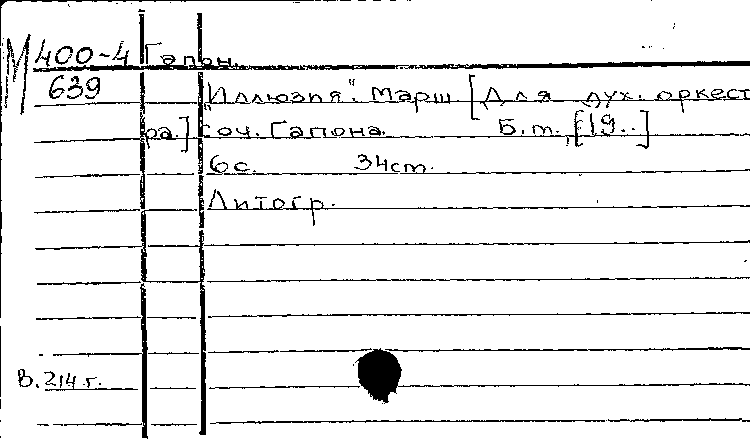 М 400-4 Гапон.
639 "Иллюзия". Марш [Для дух. оркест
ра.] соч. Гапона. Б.т., [19..]
6с. 34ст.
Литогр.
В. 214 г.